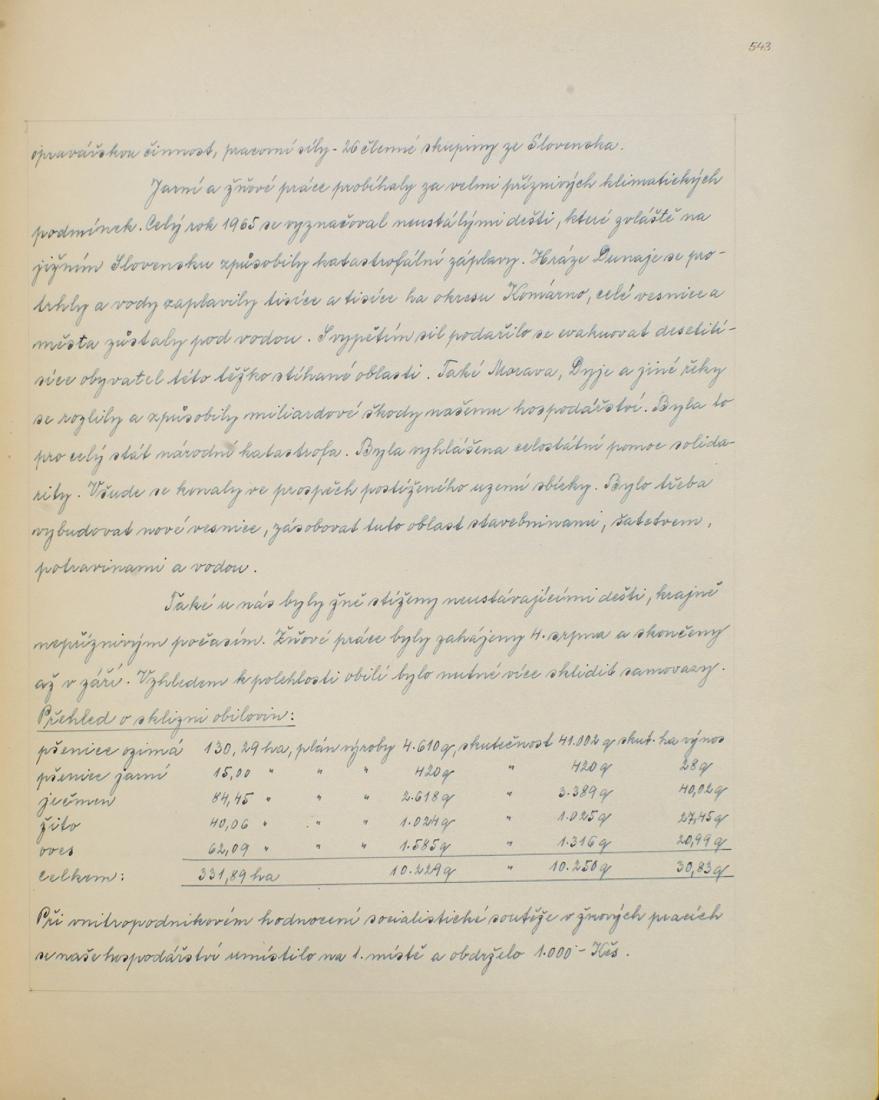 543
opravářskou činnost, pracovní síly - 26 členné skupiny ze Slovenska.
Jarní a žňové práce probíhaly za velmi příznivých klimatických
podmínek. Celý rok 1965 se vyznačoval neustálými dešti, které zvláště na
jižním Slovensku způsobily katastrofální záplavy. Hráze Dunaje se pro-
trhly a vody zaplavily tisíce a tisíce ha okresu Komárno, celé vesnice a
města zůstaly pod vodou. S vypětím sil podařilo se evakuovat desetiti-
síce obyvatel této těžko stíhané oblasti. Také Morava, Dyje a jiné řeky
se rozlily a způsobily miliardové škody našemu hospodářství. Byla to
pro celý stát národní katastrofa. Byla vyhlášena celostátní pomoc solida-
rity. Všude se konaly ve prospěch postiženého uzemí sbírky. Bylo třeba
vybudovat nové vesnice, zásobovat tuto oblast stavebninami, šatstvem,
potravinami a vodou.
Také u nás byly žně stíženy neustávajícími dešti, krajně
nepříznivým počasím. Žňové práce byly zahájeny 4. srpna a skončeny
až v září. Vzhledem k polehlosti obilí bylo nutné více sklidit samovazy.
Přehled o sklizni obilovin:
pšenice ozimá 130,29 ha, plán výroby 4.610 q, skutečnost 41.002 q skut. ha výnos
pšenice jarní 15,00 " " " 420 q " 420 q 28 q
ječmen 84,45 " " " 2.618 q " 3.389 q 40,02 q
žito 40,06 " " " 1.024 q " 1.025 q 27,45 q
oves 62,09 " " " 1.585 q 1.316 q 20,99 q
celkem: 331,89 ha 10.229 q " 10.250 q 30,83 q
Při vnitropodnikovém hodnocení socialistické soutěže v žňových pracích
se naše hospodářství umístilo na 1. místě a obdrželo 1.000 - Kčs.